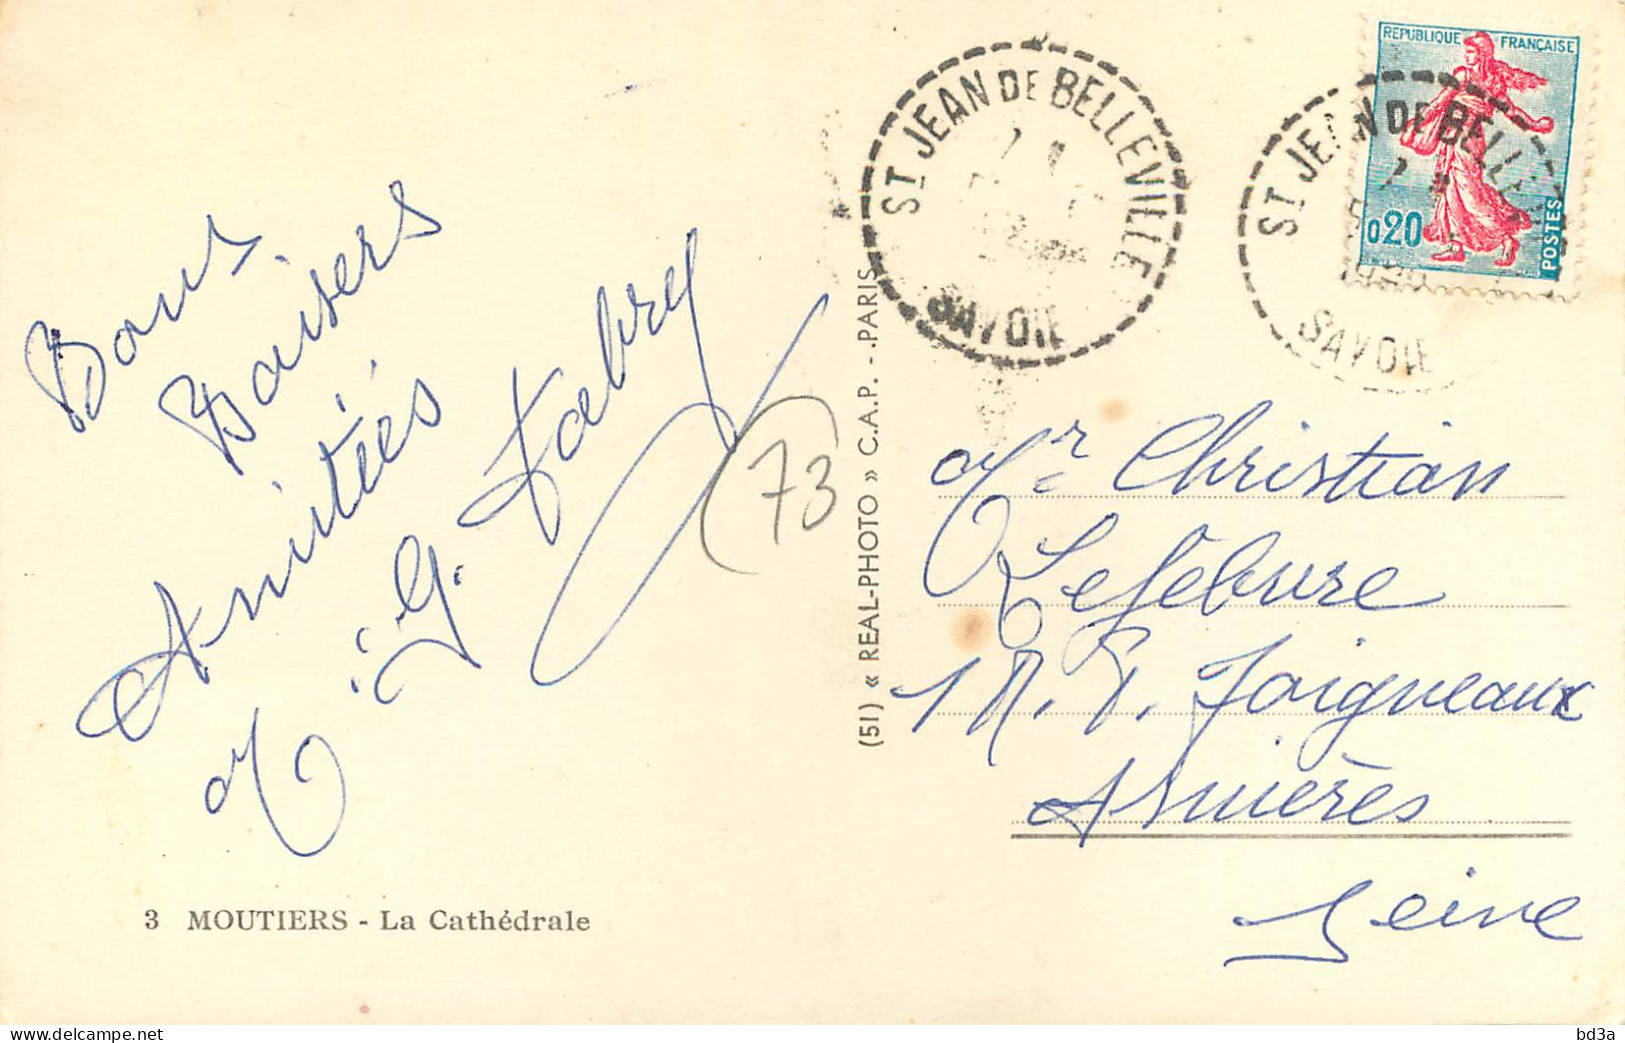 Bons
Baisers
Amitiés
M. G. Fabry
(73
3 MOUTIERS - La Cathédrale
(51) « REAL-PHOTO » C.A.P. - PARIS
ST JEAN DE BELLEVILLE
SAVOIE
ST JEAN DE BELLEVILLE
SAVOIE
REPUBLIQUE FRANÇAISE
0,20
POSTES
Mr Christian
Lefebvre
1 R. P. Joigneaux
Asnières
Seine
bd3a